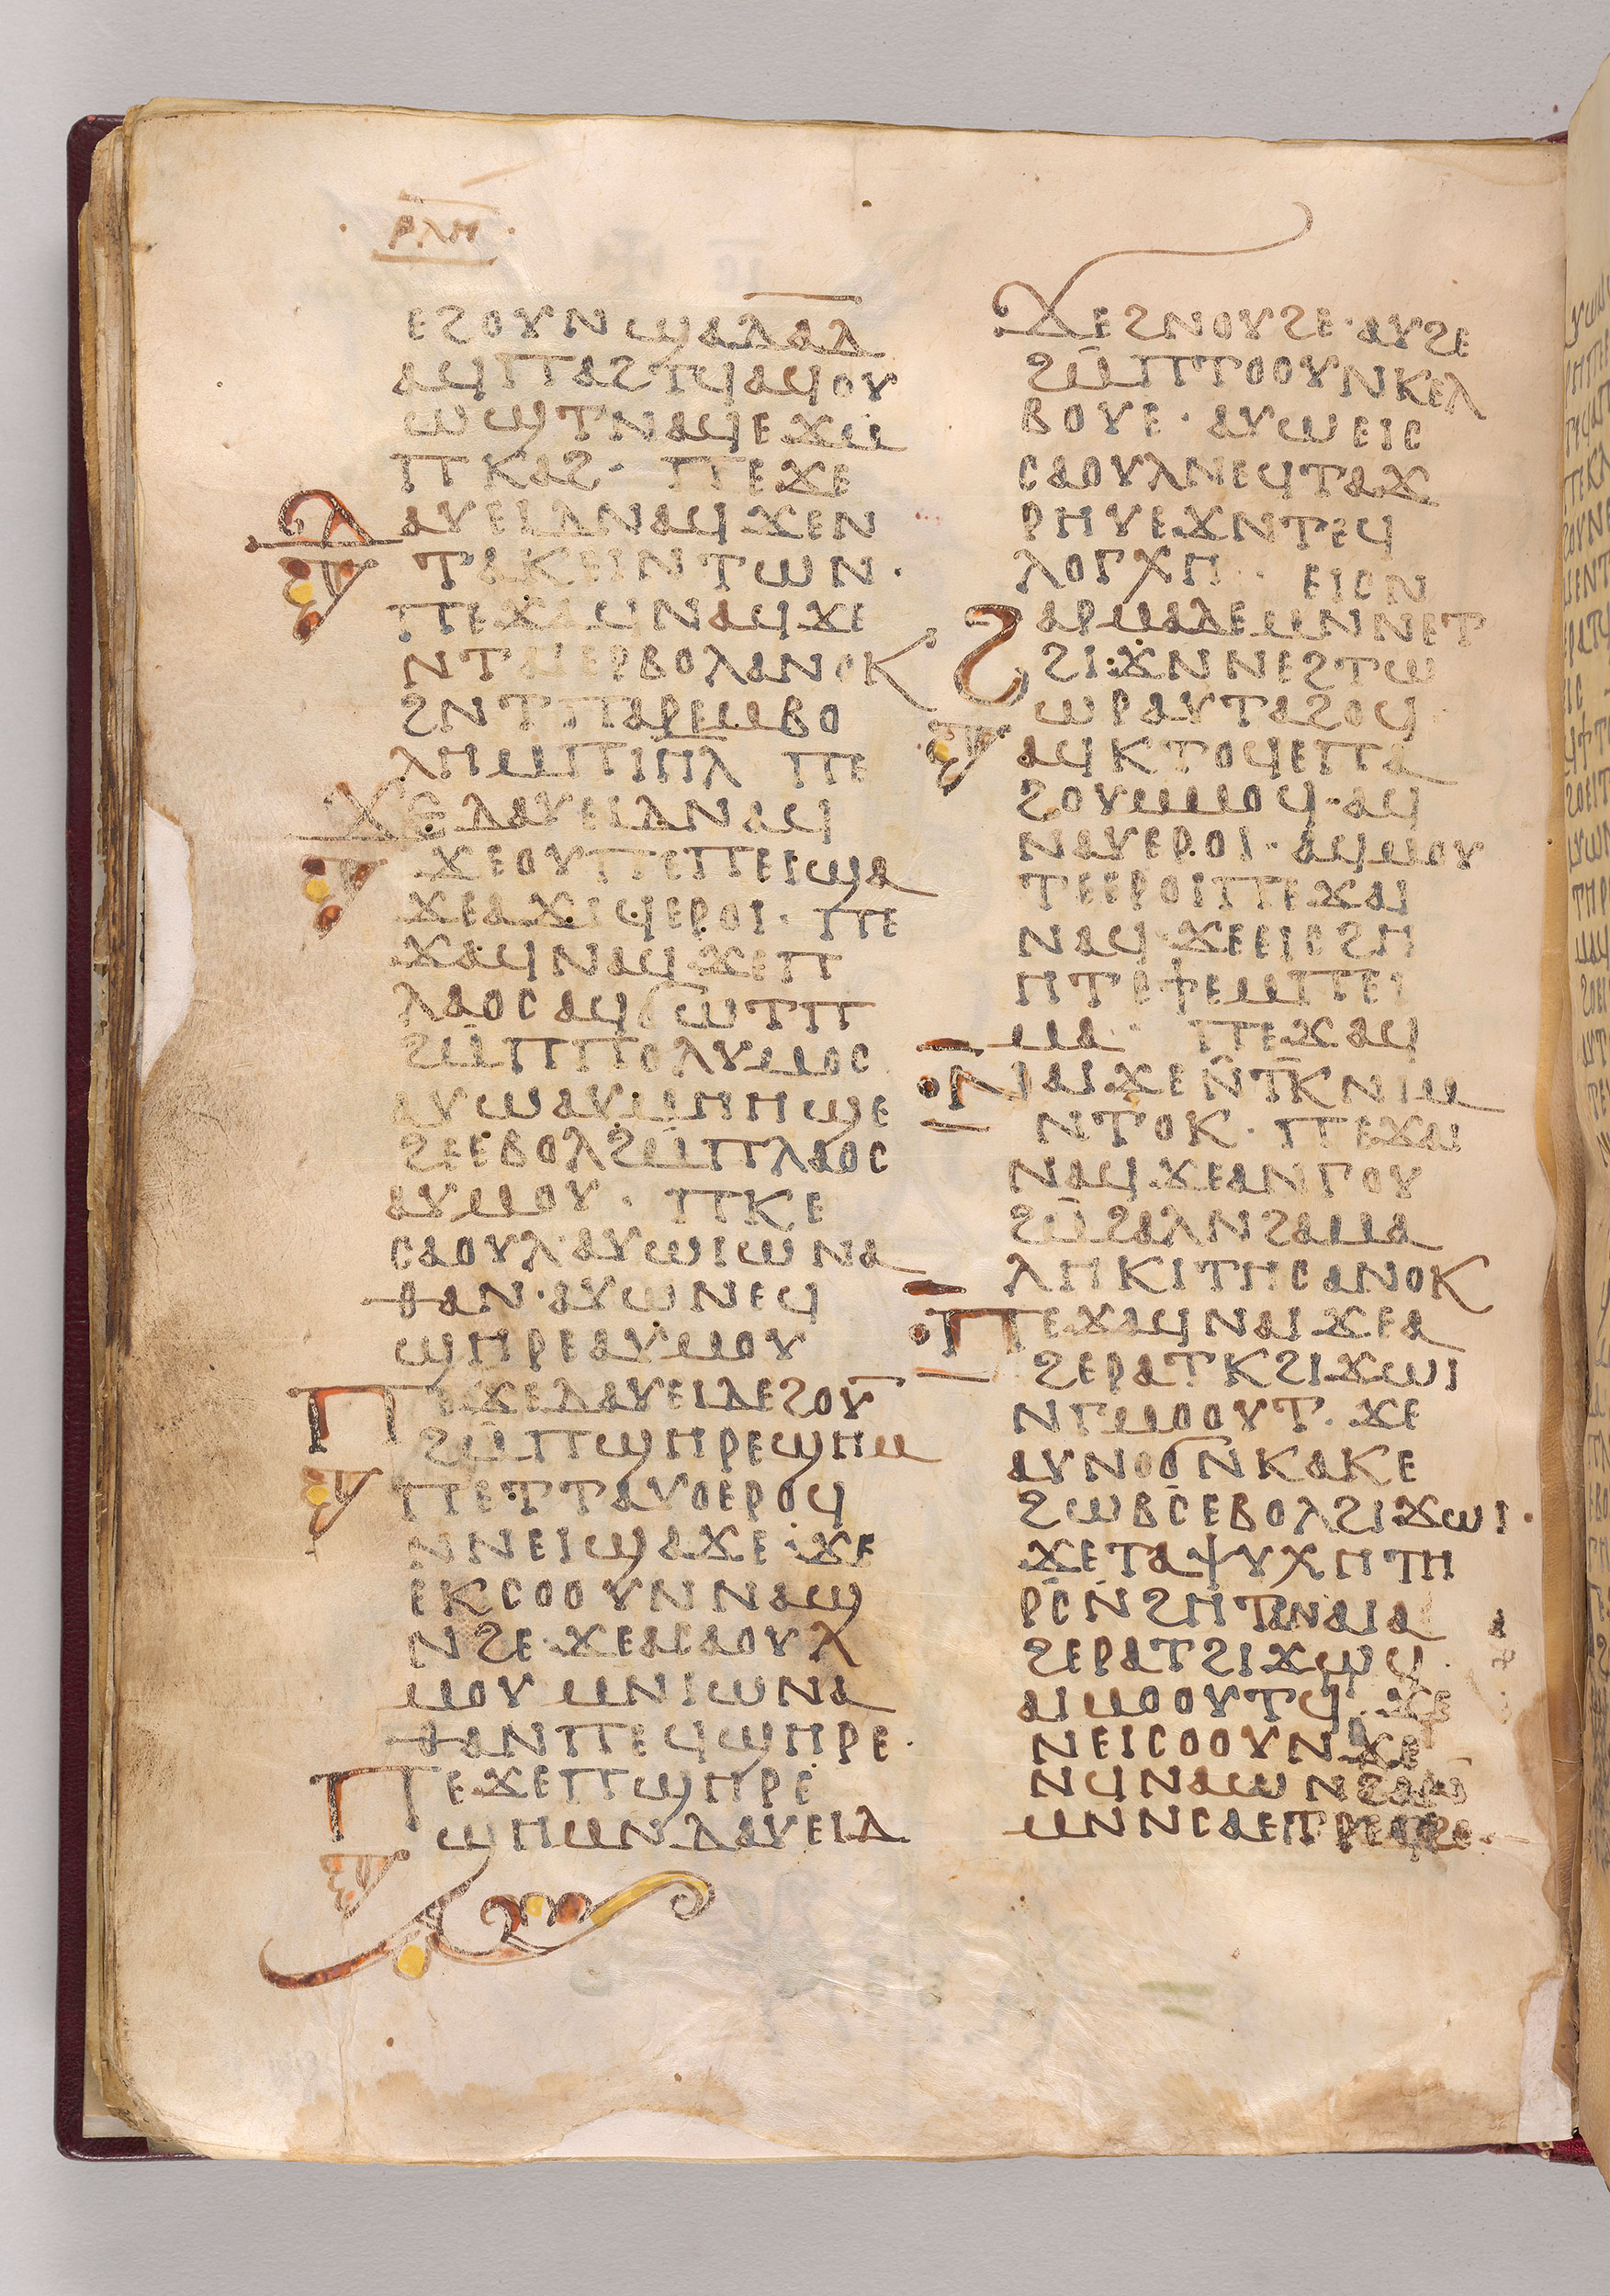 ⲣⲗⲏ
ⲉϩⲟⲩⲛϣⲁⲇⲁⲇ
ⲁϥⲡⲁϩⲧϥⲁϥⲟⲩ
ⲱϣⲧⲛⲁϥⲉϫⲙ
ⲡⲕⲁϩ· ⲡⲉϫⲉ
ⲇⲁⲩⲉⲓⲇⲛⲁϥϫⲉⲛ
ⲧⲁⲕⲉⲓⲛⲧⲱⲛ·
ⲡⲉϫⲁϥⲛⲁϥϫⲉ
ⲛⲧⲁⲓⲉⲣⲃⲟⲗⲁⲛⲟⲕ
ϩⲛⲧⲡⲁⲣⲉⲙⲃⲟ
ⲗⲏⲙⲡⲓⲏⲗ ⲡⲉ
ϫⲉⲇⲁⲩⲉⲓⲇⲛⲁϥ
ϫⲉⲟⲩⲡⲉⲡⲉⲓϣⲁ
ϫⲉⲁϫⲓϥⲉⲣⲟⲓ· ⲡⲉ
ϫⲁϥⲛⲁϥϫⲉⲡ
ⲗⲁⲟⲥⲁϥϭⲱⲧⲡ
ϩⲙⲡⲡⲟⲗⲩⲙⲟⲥ
ⲁⲩⲱⲁⲩⲙⲏⲏϣⲉ
ϩⲉⲉⲃⲟⲗϩⲙⲡⲗⲁⲟⲥ
ⲁⲩⲙⲟⲩ· ⲡⲕⲉ
ⲥⲁⲟⲩⲗ·ⲁⲩⲱⲓⲱⲛⲁ
ⲑⲁⲛ·ⲁⲩⲱⲛⲉϥ
ϣⲏⲣⲉⲁⲩⲙⲟⲩ
ⲡⲉϫⲉⲇⲁⲩⲉⲓⲇⲉϩⲟⲩ
ϩⲙⲡϣⲏⲣⲉϣⲏⲙ
ⲡⲉⲧⲧⲁⲩⲟⲉⲣⲟϥ
ⲛⲛⲉⲓϣⲁϫⲉ·ϫⲉ
ⲉⲕⲥⲟⲟⲩⲛⲛⲁϣ
ⲛϩⲉ·ϫⲉⲁⲥⲁⲟⲩⲗ
ⲙⲟⲩⲙⲛⲓⲱⲛⲁ
ⲑⲁⲛⲡⲉϥϣⲏⲣⲉ·
ⲡⲉϫⲉⲡϣⲏⲣⲉ
ϣⲏⲙⲛⲇⲁⲩⲉⲓⲇ
ϫⲉϩⲛⲟⲩϩⲉ·ⲁⲩϩⲉ
ϩⲙⲡⲧⲟⲟⲩⲛⲕⲉⲗ
ⲃⲟⲩⲉ·ⲁⲩⲱⲉⲓⲥ
ⲥⲁⲟⲩⲗⲛⲉϥⲧⲁϫ
ⲣⲏⲩⲉϫⲛⲧⲉϥ
ⲗⲟⲅⲭⲏ· ⲉⲓⲟⲛ
ϩⲁⲣⲙⲁⲇⲉⲙⲛⲛⲉⲧ
ϩⲓϫⲛⲛⲉϩⲧⲱ
ⲱⲣⲁⲩⲧⲁϩⲟϥ
ⲁϥⲕⲧⲟϥⲉⲡⲁ
ϩⲟⲩⲙⲙⲟϥ·ⲁϥ
ⲛⲁⲩⲉⲣⲟⲓ·ⲁϥⲙⲟⲩ
ⲧⲉⲉⲣⲟⲓⲡⲉϫⲁⲓ
ⲛⲁϥ·ϫⲉⲉⲓⲉϩⲏ
ⲏⲧⲉϯⲉⲙⲡⲉⲓ
ⲙⲁ· ⲡⲉϫⲁϥ
ⲛⲁⲓϫⲉⲛⲧⲕⲛⲓⲙ
ⲛⲧⲟⲕ·ⲡⲉϫⲁⲓ
ⲛⲁϥϫⲉⲁⲛⲅⲟⲩ
ϩⲙϩⲁⲗⲛϩⲁⲙⲁ
ⲗⲏⲕⲓⲧⲏⲥⲁⲛⲟⲕ
ⲡⲉϫⲁϥⲛⲁⲓϫⲉⲁ
ϩⲉⲣⲁⲧⲕϩⲓϫⲱⲓ
ⲛⲅⲙⲟⲟⲩⲧ·ϫⲉ
ⲁⲩⲛⲟϭⲛⲕⲁⲕⲉ
ϩⲱⲃⲥⲉⲃⲟⲗϩⲓϫⲱⲓ·
ϫⲉⲧⲁⲯⲩⲭⲏⲧⲏ
ⲣⲥⲛϩⲏⲧⲁⲛⲁⲓⲁ
ϩⲉⲣⲁⲧϩⲓϫⲱϥ
ⲁⲓⲙⲟⲟⲩⲧϥ·ϫⲉ
ⲛⲉⲓⲥⲟⲟⲩⲛϫⲉ
ⲛϥⲛⲁⲱⲛϩⲁⲛ
ⲙⲛⲛⲥⲁⲉⲧⲣⲉϥϩⲉ